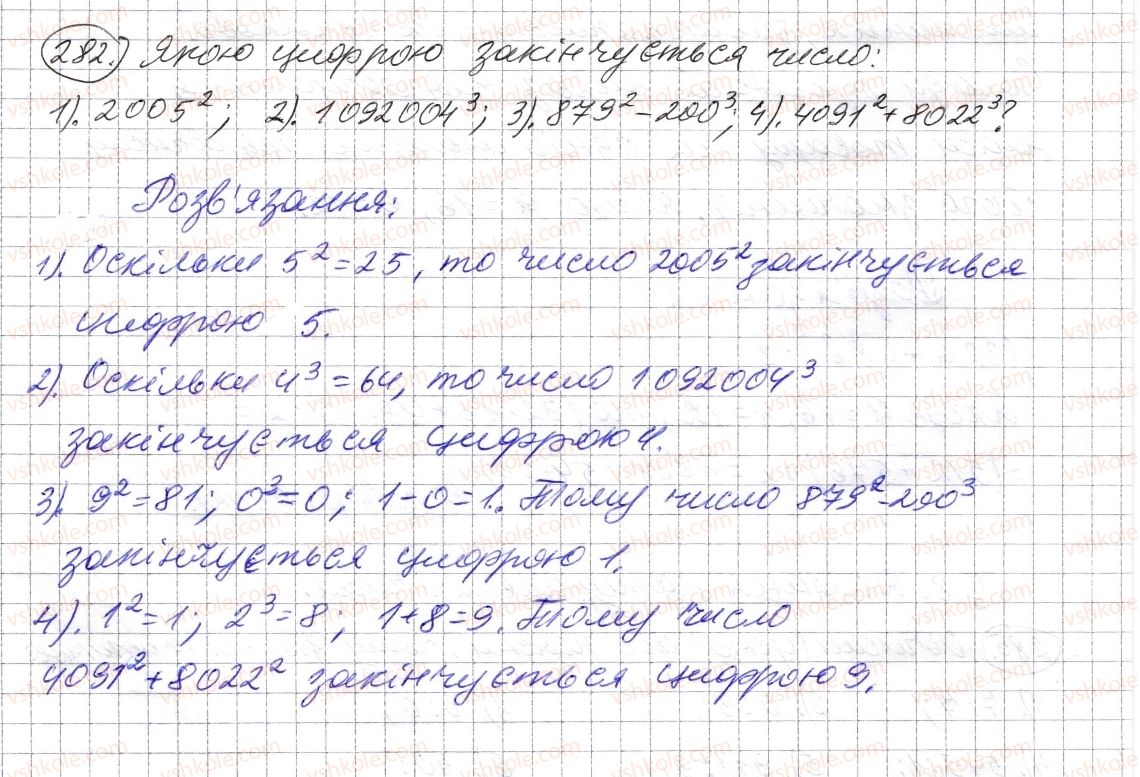 282.) Якою цифрою закінчується число:
1). 2005²; 2). 1092004³; 3). 879² - 200³; 4). 4091² + 8022³?
Розв'язання:
1). Оскільки 5² = 25, то число 2005² закінчується
цифрою 5.
2). Оскільки 4³ = 64, то число 1092004³
закінчується цифрою 4.
3). 9² = 81; 0³ = 0; 1 - 0 = 1. Тому число 879² - 200³
закінчується цифрою 1.
4). 1² = 1; 2³ = 8; 1 + 8 = 9. Тому число
4091² + 8022² закінчується цифрою 9.